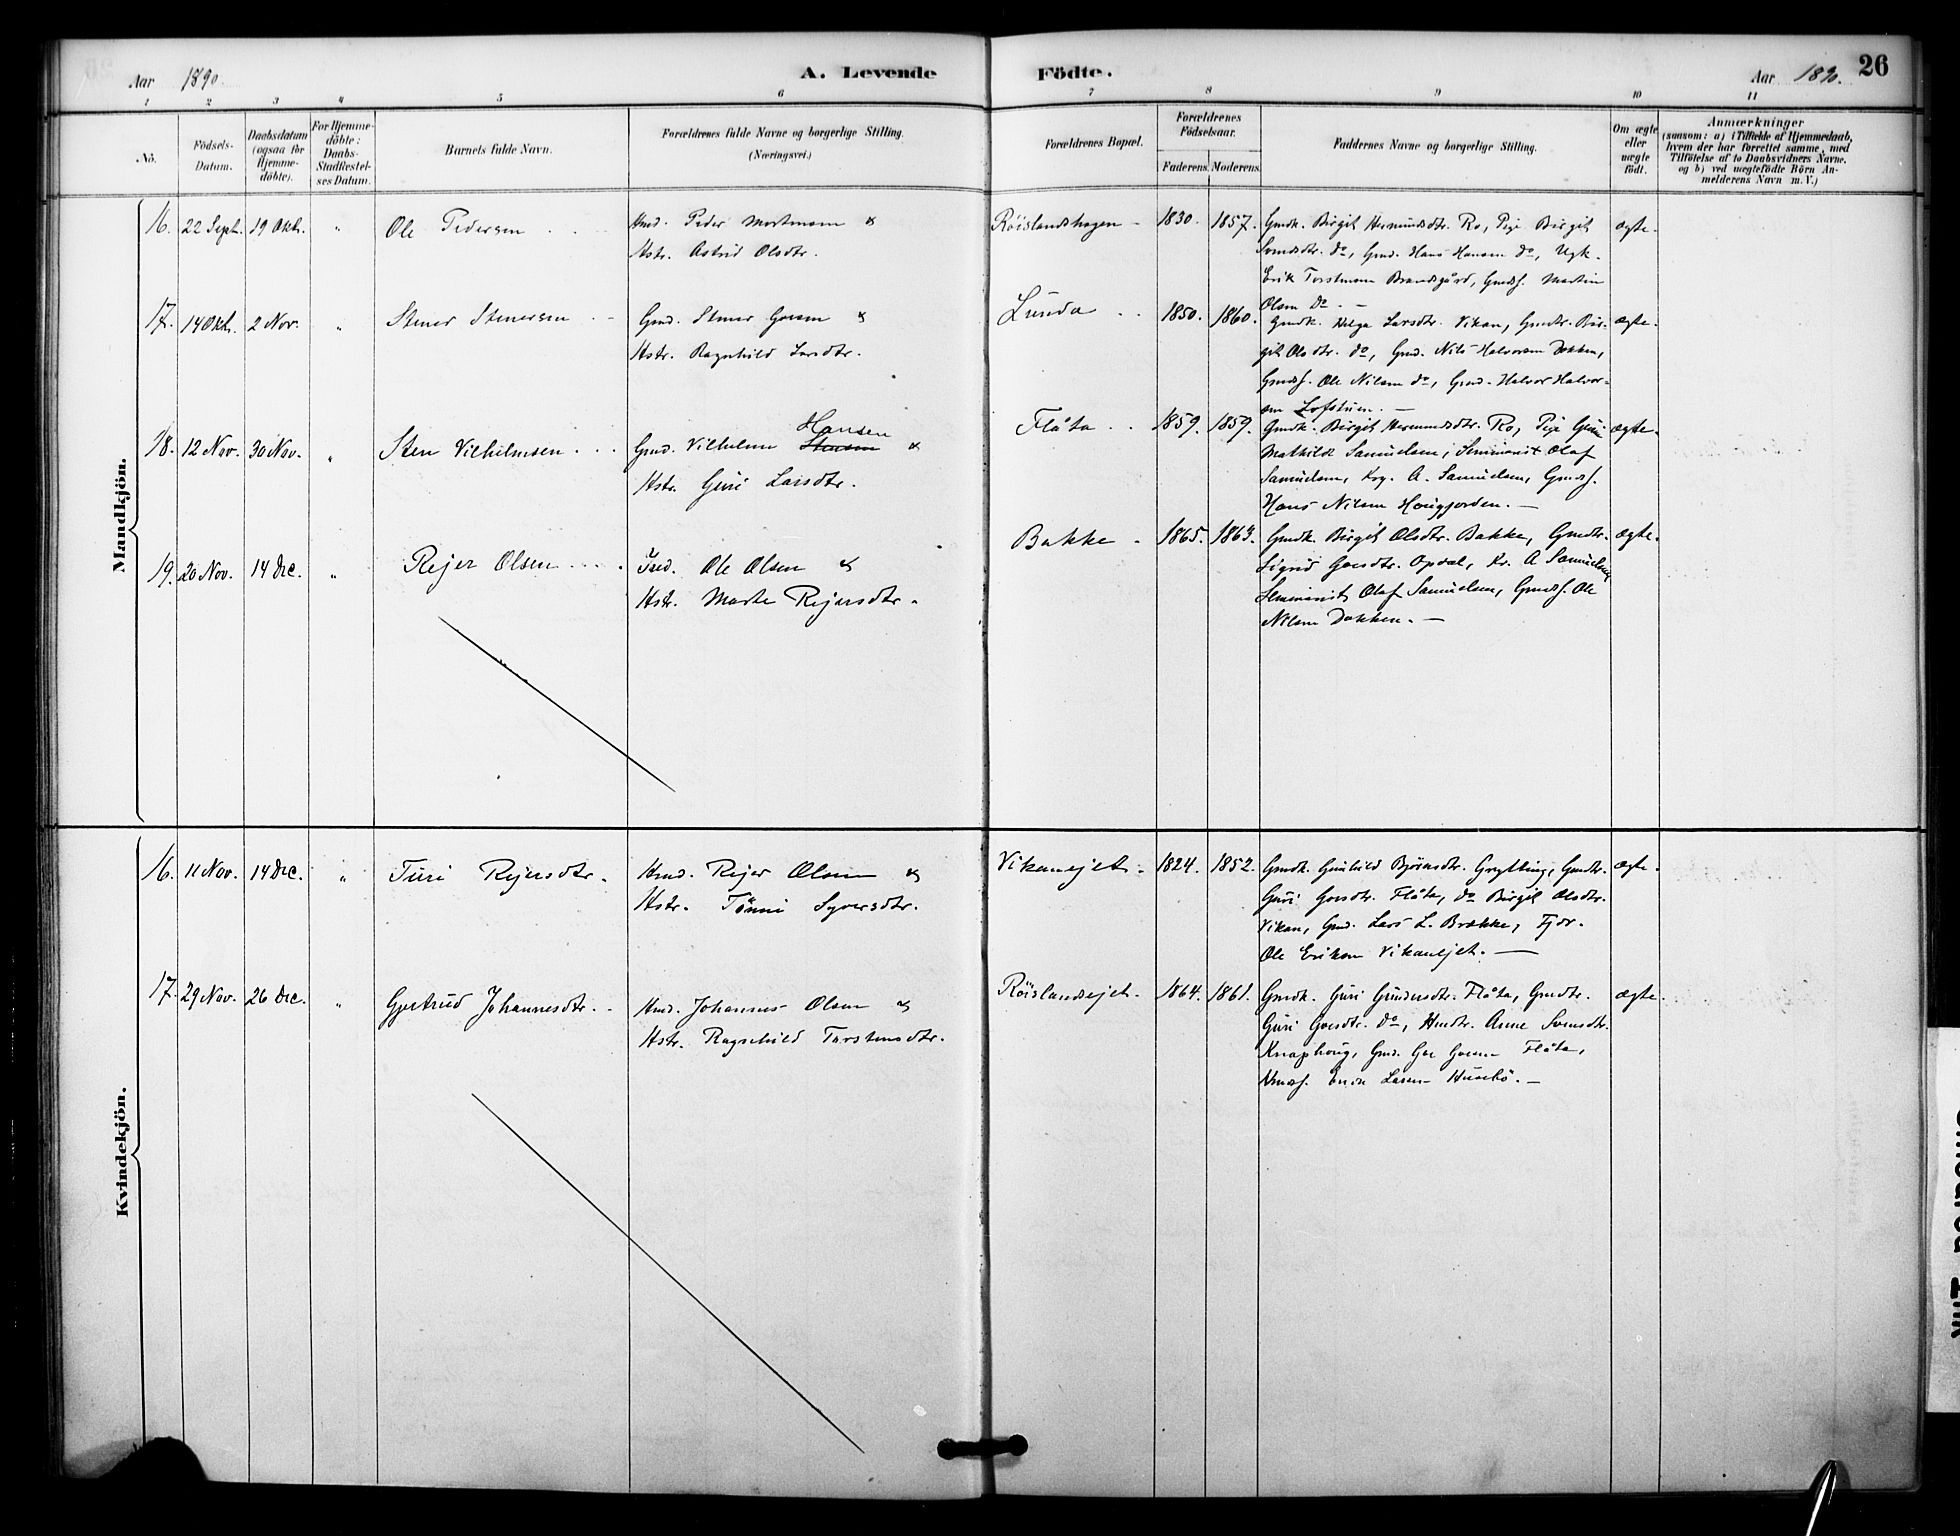 Aar 1890.
A. Levende
Födte.
Aar 1890.
26
1 2 3 4 5 6 7 8 9 10 11
Nô.
Födsels-Datum.
Daabsdatum (ogsaa for Hjemme-döbte).
For Hjemme-döbte: Daabs-Stadfæstel-ses Datum.
Barnets fulde Navn.
Forældrenes fulde Navne og borgerlige Stilling.
(Næringsvei.)
Forældrenes Bopæl.
Forældrenes Födselsaar.
Faderens. Moderens.
Faddernes Navne og borgerlige Stilling.
Om ægte eller uægte födt.
Anmærkninger
(saasom: a) i Tilfælde af Hjemmedaab,
hvem der har forrettet samme, med
Tilföielse af to Daabsvidners Navne.
og b) ved uægtefödte Börn An-
melderens Navn m. V.)
Mandkjön.
16. 22 Sept. 19 Okt. " Ole Pedersen
Hmd. Peder Mortensen &
Hstr. Astrid Olsdtr.
Röislandshagen - 1830. 1857.
Gmdk. Birgit Hermundsdtr. Ro, Pige Birgit
Svendsdtr. do, Gmd. Hans Hansen do, Ugk.
Erik Torstensen Brandsgård, Gmdsf. Martin
Olsen do. -
ægte.
17. 14 Okt. 2 Nov. " Stener Stenersen
Gmd. Stener Goesen &
Hstr. Ragnhild Larsdtr.
Lunda 1850. 1860.
Gmdk. Helga Larsdtr. Vikan, Gmdtr. Bir-
git Olsdtr. do, Gmd. Nils Halvorsen Dokken,
Gmdsf. Ole Nilsen do, Gmd. Halvor Halvor-
sen Lofstuen. -
ægte.
18. 12 Nov. 30 Nov. " Sten Vilhelmsen
Hansen
Gmd. Vilhelm Stensen &
Hstr. Guri Larsdtr.
Flåta 1859. 1859.
Gmdk. Birgit Hermundsdtr. Ro, Pige Guri
Mathilde Samuelsen, Seminarist Olaf
Samuelsen, Krg. A. Samuelsen, Gmdsf.
Hans Nilsen Hougjorden. -
ægte.
19. 20 Nov. 14 Dec. " Rejer Olsen
Ole Olsen &
Hstr. Marte Rejersdtr.
Bakke - 1865. 1863.
Gmdk. Birgit Olsdtr. Bakke, Gmdtr.
Sigrid Goesdtr. Opdal, Kr. A Samuelsen
Seminarist Olaf Samuelsen, Gmdsf. Ole
Nilsen Dokken. -
ægte.
Kvindekjön.
16. 11 Nov. 14 Dec. " Turi Rejersdtr.
Hmd. Rejer Olsen &
Hstr. Tönni Syversdtr.
Vikanejet. 1824. 1852.
Gmdk. Gunhild Björnsdtr. Grytting, Gmdtr.
Guri Goesdtr. Flåta, do Birgit Olsdtr.
Vikan, Gmd. Lars L. Brække,
Ole Eriksen Vikanejet. -
ægte.
17. 29 Nov. 26 Dec. " Gjertrud Johannesdtr.
Hmd. Johannes Olsen &
Hstr. Ragnhild Torstensdtr.
Röislandsejet. 1864. 1861.
Gmdk. Guri Gundersdtr. Flåta, Gmdtr.
Guri Goesdtr. do, Hmdtr. Anne Svensdtr.
Knaphoug, Gmd. Goe Goesen Flåta,
Larsen Husebö. -
ægte.